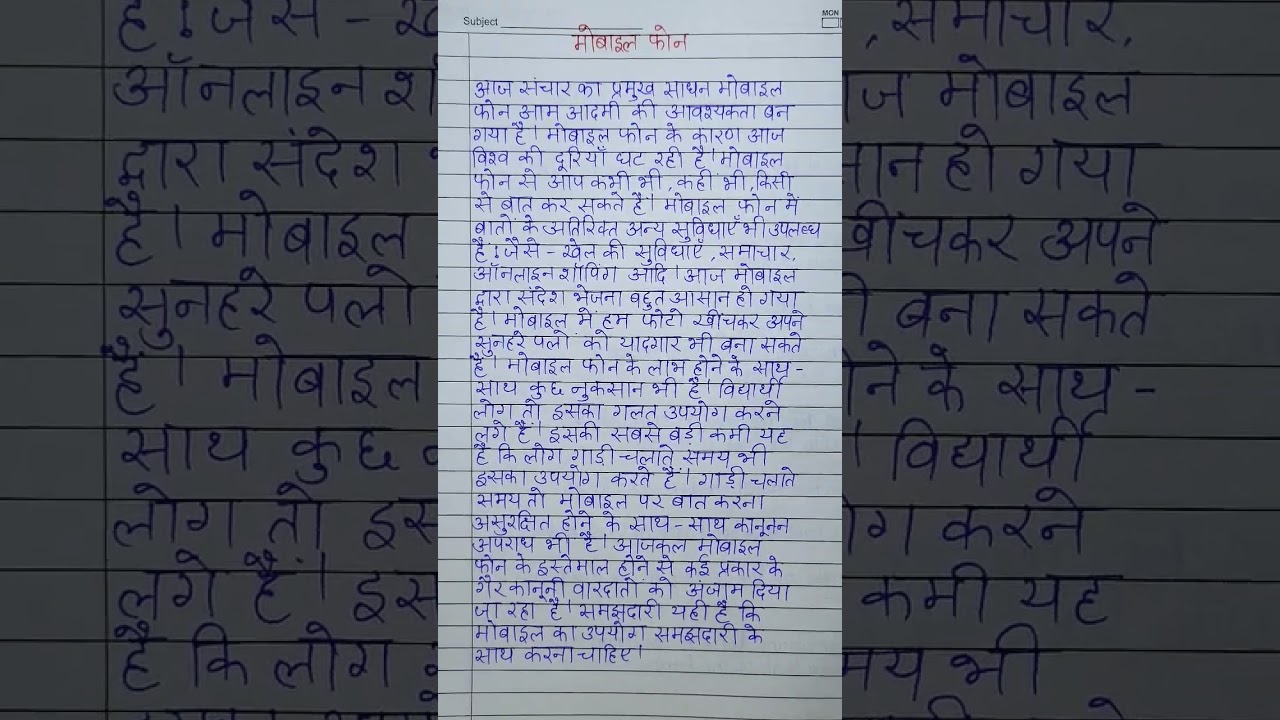 Subject
MON
मोबाइल फोन
आज संचार का प्रमुख साधन मोबाइल
फोन आम आदमी की आवश्यकता बन
गया है। मोबाइल फोन के कारण आज
विश्व की दूरियाँ घट रही है। मोबाइल
फोन से आप कभी भी, कही भी, किसी
से बात कर सकते है। मोबाइल फोन में
बातों के अतिरिक्त अन्य सुविधाएँ भी उपलब्ध
है। जैसे - खेल की सुविधाएँ, समाचार,
ऑनलाइन शॉपिंग आदि। आज मोबाइल
द्वारा संदेश भेजना बहुत आसान हो गया
है। मोबाइल में हम फोटो खींचकर अपने
सुनहरे पलो को यादगार भी बना सकते
है। मोबाइल फोन के लाभ होने के साथ-
साथ कुछ नुकसान भी है। विद्यार्थी
लोग तो इसका गलत उपयोग करने
लगे हैं। इसकी सबसे बड़ी कमी यह
है कि लोग गाड़ी चलाते समय भी
इसका उपयोग करते हैं। गाड़ी चलाते
समय तो मोबाइल पर बात करना
असुरक्षित होने के साथ-साथ कानूनन
अपराध भी है। आजकल मोबाइल
फोन के इस्तेमाल होने से कई प्रकार के
गैर कानूनी वारदातो को अंजाम दिया
जा रहा है। समझदारी यही है कि
मोबाइल का उपयोग समझदारी के
साथ करना चाहिए।